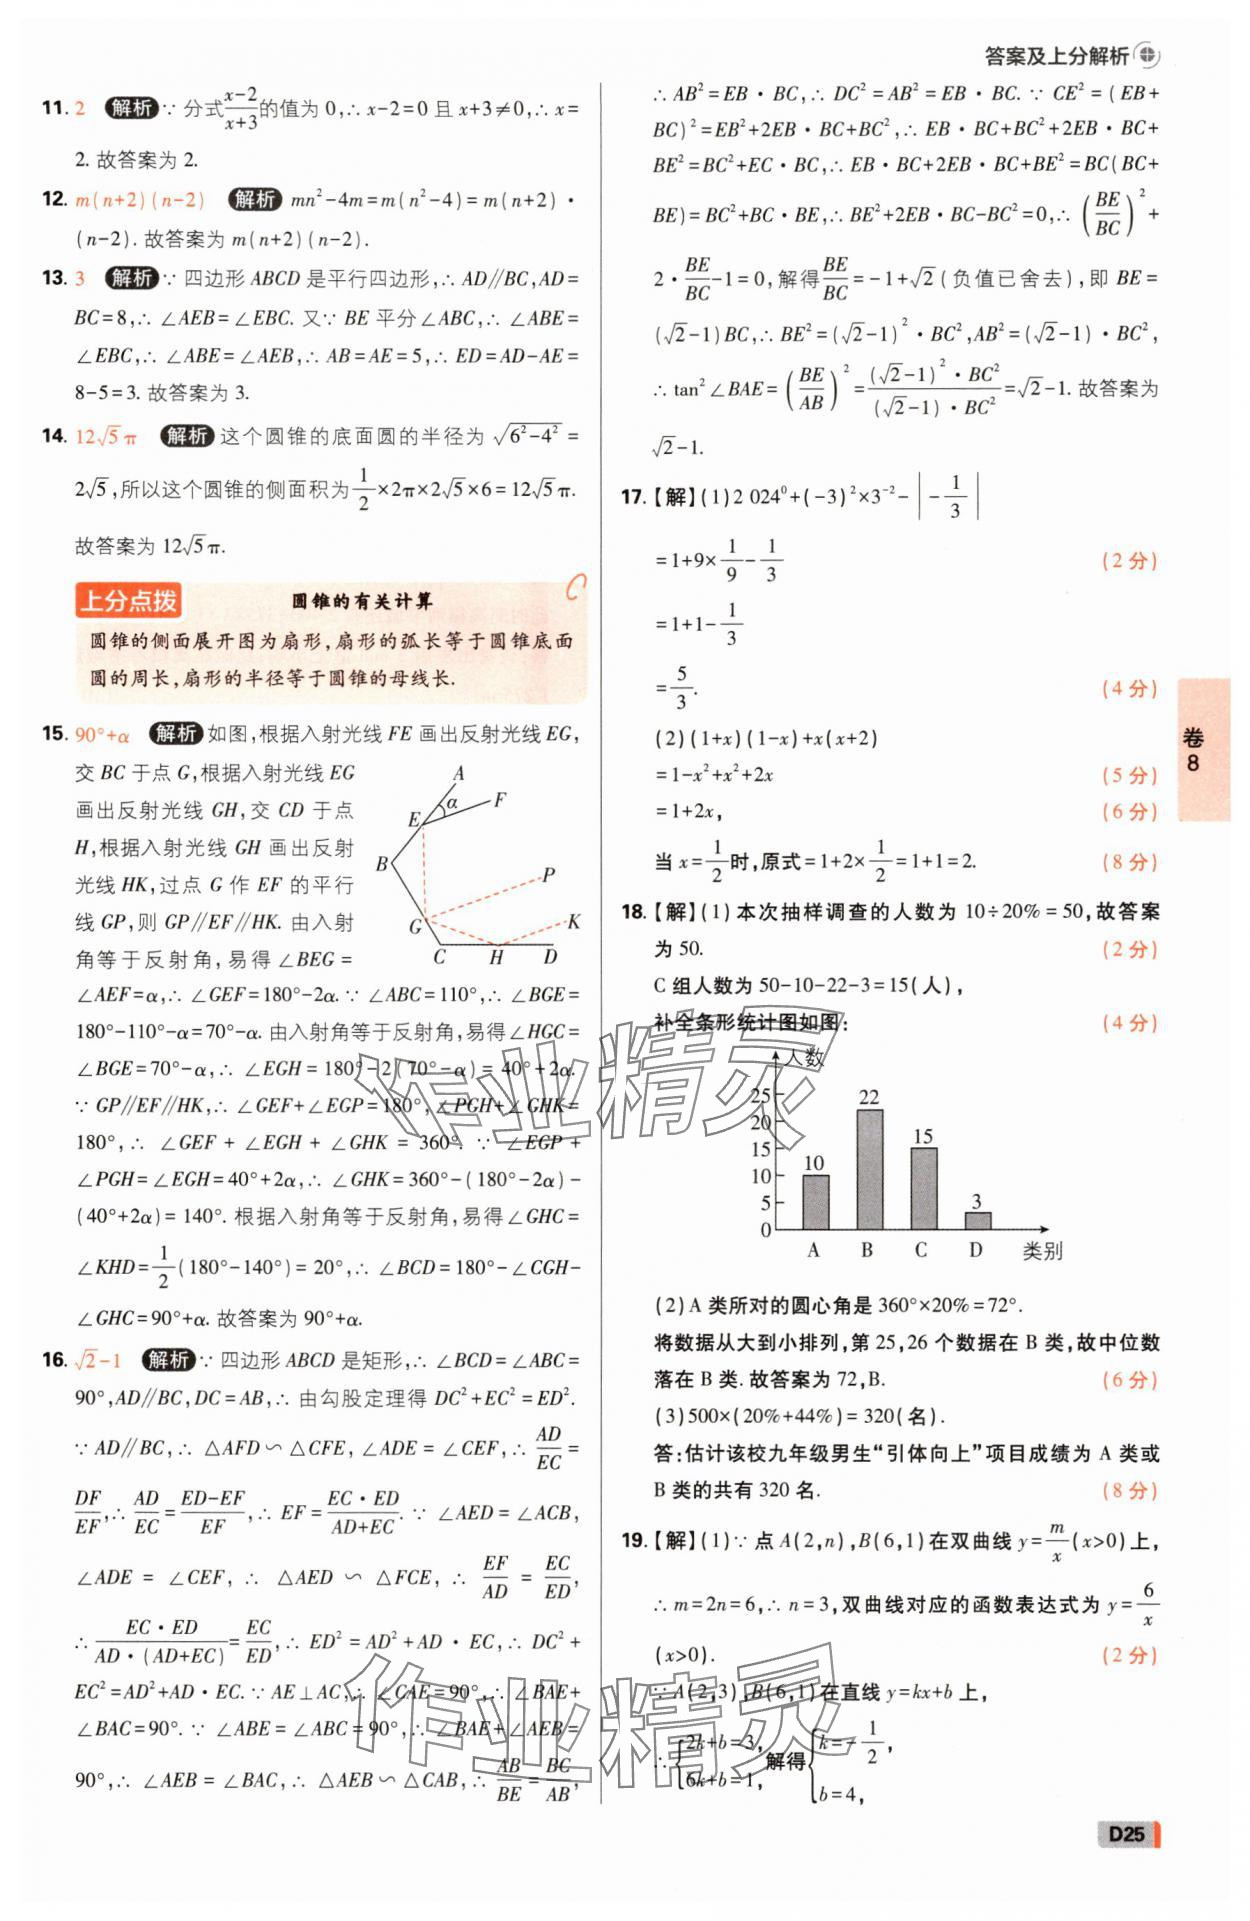 答案及上分解析
11. 2 解析 ∵ 分式(x-2)/(x+3)的值为 0,∴ x-2=0 且 x+3≠0,∴ x=
2. 故答案为 2.
12. m(n+2)(n-2) 解析 mn²-4m=m(n²-4)=m(n+2)·
(n-2). 故答案为 m(n+2)(n-2).
13. 3 解析 ∵ 四边形 ABCD 是平行四边形,∴ AD∥BC,AD=
BC=8,∴ ∠AEB=∠EBC. 又∵ BE 平分∠ABC,∴ ∠ABE=
∠EBC,∴ ∠ABE=∠AEB,∴ AB=AE=5,∴ ED=AD-AE=
8-5=3. 故答案为 3.
14. 12√5π 解析 这个圆锥的底面圆的半径为 √(6²-4²)=
2√5,所以这个圆锥的侧面积为1/2×2π×2√5×6=12√5π.
故答案为 12√5π.
上分点拨 圆锥的有关计算
圆锥的侧面展开图为扇形,扇形的弧长等于圆锥底面
圆的周长,扇形的半径等于圆锥的母线长.
15. 90°+α 解析 如图,根据入射光线 FE 画出反射光线 EG,
交 BC 于点 G,根据入射光线 EG
画出反射光线 GH,交 CD 于点
H,根据入射光线 GH 画出反射
光线 HK,过点 G 作 EF 的平行
线 GP,则 GP∥EF∥HK. 由入射
角等于反射角,易得∠BEG=
A
α
F
E
B
P
G
K
C H D
∠AEF=α,∴ ∠GEF=180°-2α. ∵ ∠ABC=110°,∴ ∠BGE=
180°-110°-α=70°-α. 由入射角等于反射角,易得∠HGC=
∠BGE=70°-α,∴ ∠EGH=180°-2(70°-α)=40°+2α.
∵ GP∥EF∥HK,∴ ∠GEF+∠EGP=180°,∠PGH+∠GHK=
180°,∴ ∠GEF+∠EGH+∠GHK=360°. ∵ ∠EGP+
∠PGH=∠EGH=40°+2α,∴ ∠GHK=360°-(180°-2α)-
(40°+2α)=140°. 根据入射角等于反射角,易得∠GHC=
∠KHD=1/2(180°-140°)=20°,∴ ∠BCD=180°-∠CGH-
∠GHC=90°+α. 故答案为 90°+α.
16. √2-1 解析 ∵ 四边形 ABCD 是矩形,∴ ∠BCD=∠ABC=
90°,AD∥BC,DC=AB,∴ 由勾股定理得 DC²+EC²=ED².
∵ AD∥BC,∴ △AFD∽△CFE,∠ADE=∠CEF,∴ AD/EC=
DF/EF,∴ AD/EC=(ED-EF)/EF,∴ EF=(EC·ED)/(AD+EC). ∵ ∠AED=∠ACB,
∠ADE=∠CEF,∴ △AED∽△FCE,∴ EF/AD=EC/ED,
∴ (EC·ED)/(AD·(AD+EC))=EC/ED,∴ ED²=AD²+AD·EC,∴ DC²+
EC²=AD²+AD·EC. ∵ AE⊥AC,∴ ∠CAE=90°,∴ ∠BAE+
∠BAC=90°. ∵ ∠ABE=∠ABC=90°,∴ ∠BAE+∠AEB=
90°,∴ ∠AEB=∠BAC,∴ △AEB∽△CAB,∴ AB/BE=BC/AB,
∴ AB²=EB·BC,∴ DC²=AB²=EB·BC. ∵ CE²=(EB+
BC)²=EB²+2EB·BC+BC²,∴ EB·BC+BC²+2EB·BC+
BE²=BC²+EC·BC,∴ EB·BC+2EB·BC+BE²=BC(BC+
BE)=BC²+BC·BE,∴ BE²+2EB·BC-BC²=0,∴ (BE/BC)²+
2·BE/BC-1=0,解得BE/BC=-1+√2(负值已舍去),即 BE=
(√2-1)BC,∴ BE²=(√2-1)²·BC²,AB²=(√2-1)·BC²,
∴ tan²∠BAE=(BE/AB)²=((√2-1)²·BC²)/((√2-1)·BC²)=√2-1. 故答案为
√2-1.
17.【解】(1)2 024⁰+(-3)²×3⁻²-|-1/3|
=1+9×1/9-1/3 (2 分)
=1+1-1/3
=5/3. (4 分)
(2)(1+x)(1-x)+x(x+2)
=1-x²+x²+2x (5 分)
=1+2x, (6 分)
当 x=1/2时,原式=1+2×1/2=1+1=2. (8 分)
18.【解】(1)本次抽样调查的人数为 10÷20%=50,故答案
为 50. (2 分)
C 组人数为 50-10-22-3=15(人),
补全条形统计图如图: (4 分)
人数
25
20
15
10
5
0
10
22
15
3
A B C D 类别
(2)A 类所对的圆心角是 360°×20%=72°.
将数据从大到小排列,第 25,26 个数据在 B 类,故中位数
落在 B 类. 故答案为 72,B. (6 分)
(3)500×(20%+44%)=320(名).
答:估计该校九年级男生“引体向上”项目成绩为 A 类或
B 类的共有 320 名. (8 分)
19.【解】(1)∵ 点 A(2,n),B(6,1)在双曲线 y=m/x(x>0)上,
∴ m=2n=6,∴ n=3,双曲线对应的函数表达式为 y=6/x
(x>0). (2 分)
∵ A(2,3),B(6,1)在直线 y=kx+b 上,
∴ {2k+b=3, 6k+b=1, 解得{k=-1/2, b=4,
卷
8
D25
作业精灵
作业精灵